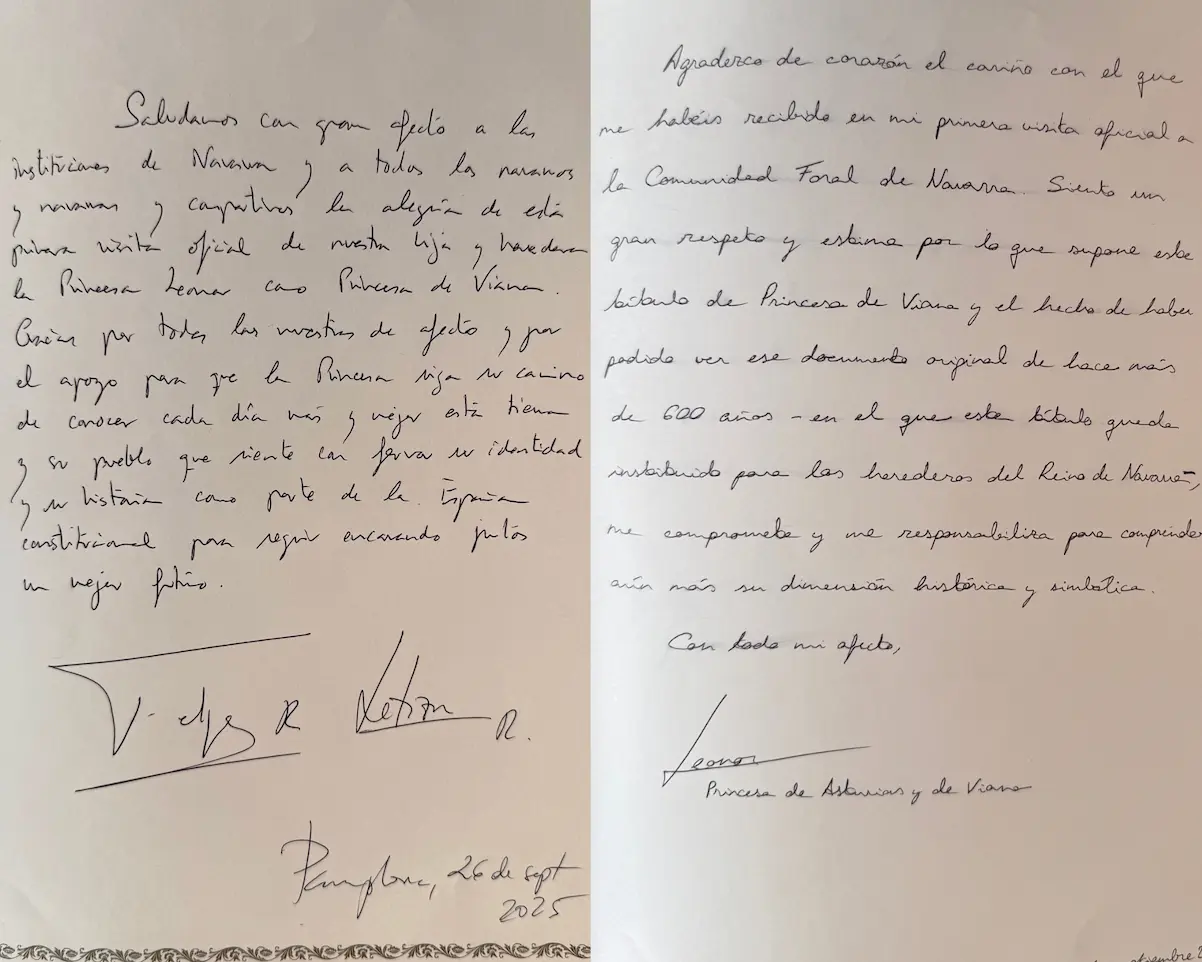 Saludamos con gran afecto a las
instituciones de Navarra y a todos los navarros
y navarras y compartimos la alegría de esta
primera visita oficial de nuestra hija y heredera
la Princesa Leonor como Princesa de Viana.
Gracias por todas las muestras de afecto y por
el apoyo para que la Princesa siga su camino
de conocer cada día más y mejor esta tierra
y su pueblo que siente con fervor su identidad
y su historia como parte de la España
constitucional para seguir encarando juntos
un mejor futuro.
Felipe R Letizia R.
Pamplona, 26 de sept
2025
Agradezco de corazón el cariño con el que
me habéis recibido en mi primera visita oficial a
la Comunidad Foral de Navarra. Siento un
gran respeto y estima por lo que supone este
título de Princesa de Viana y el hecho de haber
podido ver ese documento original de hace más
de 600 años - en el que este título queda
instituido para los herederos del Reino de Navarra-,
me compromete y me responsabiliza para comprender
aún más su dimensión histórica y simbólica.
Con todo mi afecto,
Leonor
Princesa de Asturias y de Viana